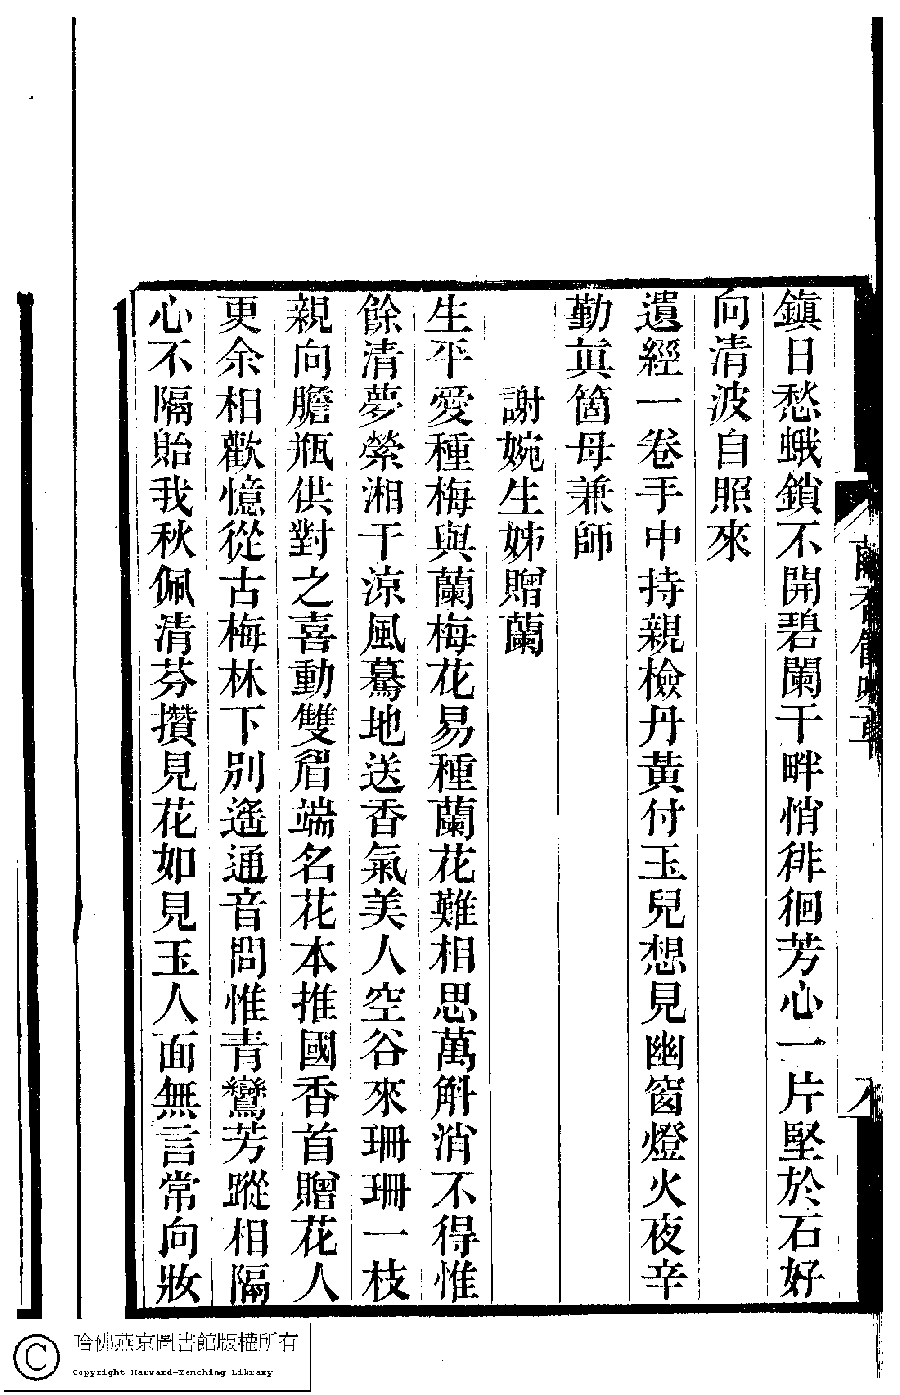 鎮日愁蛾鎖不開碧闌干畔悄徘徊芳心一片堅於石好
向清波自照來
遺經一卷手中持親檢丹黃付玉兒想見幽窗燈火夜辛
勤眞箇母兼師
謝婉生姊贈蘭
生平愛種梅與蘭梅花易種蘭花難相思萬斛消不得惟
餘清夢縈湘干涼風驀地送香氣美人空谷來珊珊一枝
親向膽瓶供對之喜動雙眉端名花本推國香首贈花人
更余相歡憶從古梅林下別遙通音問惟青鸞芳蹤相隔
心不隔貽我秋佩清芬攢見花如見玉人面無言常向妝
八
哈佛燕京圖書館版權所有
Copyright Harvard-Yenching Library